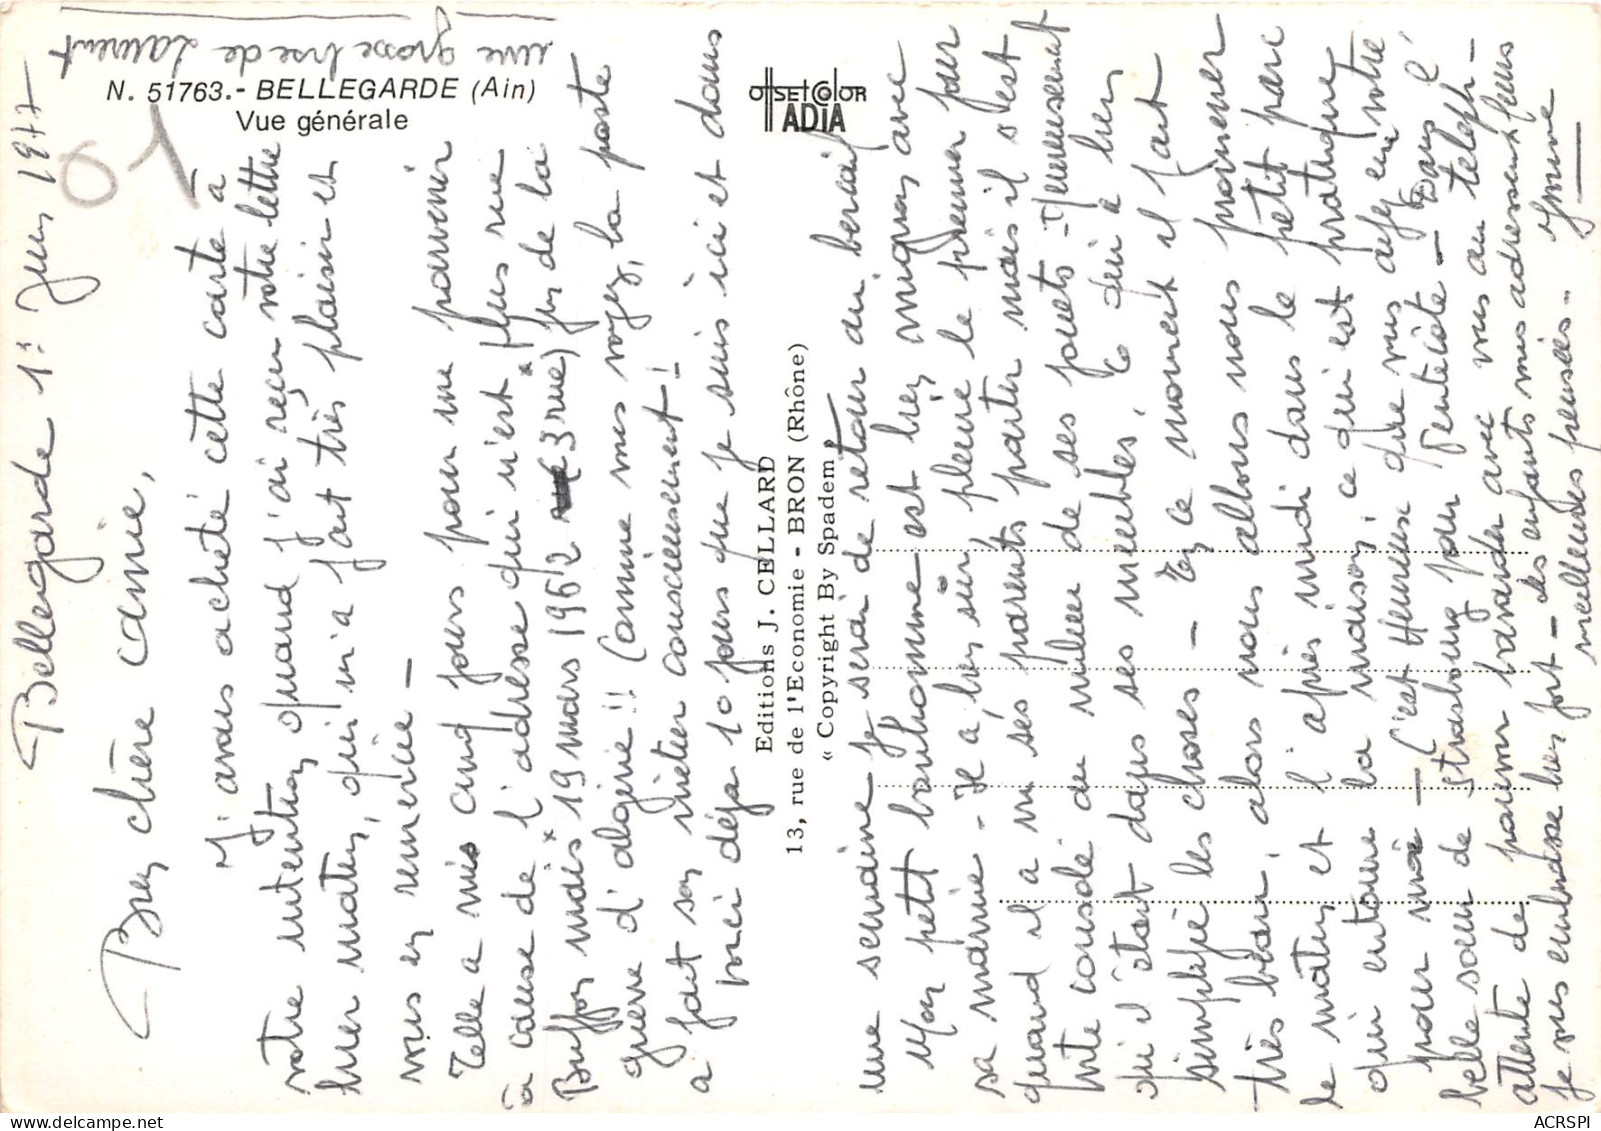 une grosse bise de Laurent
N. 51763.- BELLEGARDE (Ain)
Vue générale
01
offset color
ADIA
Editions J. CELLARD
13, rue de l'Economie - BRON (Rhône)
« Copyright By Spadem »
Bellegarde 1er Juin 1977
Bien chère amie,
J'avais acheté cette carte à
votre intention quand j'ai reçu votre lettre
hier matin, qui m'a fait très plaisir et
vous en remercie -
Elle a mis cinq jours pour me parvenir
à cause de l'adresse qui n'est plus rue
Buffon mais 19 mars 1962 (3 rue) fin de la
guerre d'algérie !! Comme vous voyez, la poste
a fait son métier consciencieusement !
Voici déja 10 jours que je suis ici et dans
une semaine je serai de retour au bercail
Mon petit bonhomme est bien mignon avec
sa mamie - Il a bien sûr, pleuré le premier jour
quand il a vu ses parents partir mais il s'est
vite consolé au milieu de ses jouets - Heureusement
qu'il était dans ses meubles, ce qui a bien
simplifié les choses - En ce moment il fait
très beau, alors nous allons nous promener
le matin et l'après midi dans le petit parc
qui entoure la maison, ce qui est pratique
pour moi - C'est Heureux que vous ayez eu votre
belle soeur de Strasbourg pour Pentecôte - Dans l'
attente de pouvoir bavarder avec vous au téléph-
je vous embrasse bien fort - les enfants vous adressent leurs
meilleures pensées -
Ymme
ACRSPI